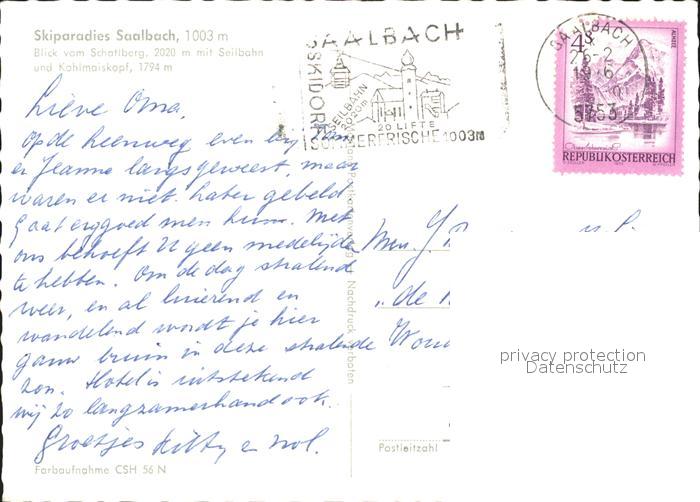 Skiparadies Saalbach, 1003 m
Blick vom Schattberg, 2020 m mit Seilbahn
und Kohlmaiskopf, 1794 m
Lieve Oma,
Op de heenweg even by
en Jeanne langsgeweest, maar
waren er niet. Later gebeld
Gaat erg goed men hun. Met
ons behoeft U geen medelijden
te hebben. Om de dag stralend
weer, en al luierend en
wandelend wordt je hier
gauw bruin in deze stralende
zon. Hotel is uitstekend
wij zo langzamerhand ook.
Groetjes Kitty en Nol.
Farbaufnahme CSH 56 N
Nachdruck verboten
SAALBACH
SKIDORF
SEILBAHN
2020m
20 LIFTE
SOMMERFRISCHE 1003m
SAALBACH
5753
4S
ALMSEE
REPUBLIK ÖSTERREICH
Mw. J.
"de
Postleitzahl
privacy protection
Datenschutz